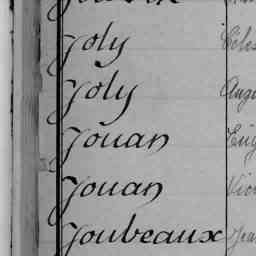 Joly Céles
Joly Augu
Jouan Eug
Jouan Vic
Joubeaux Jea